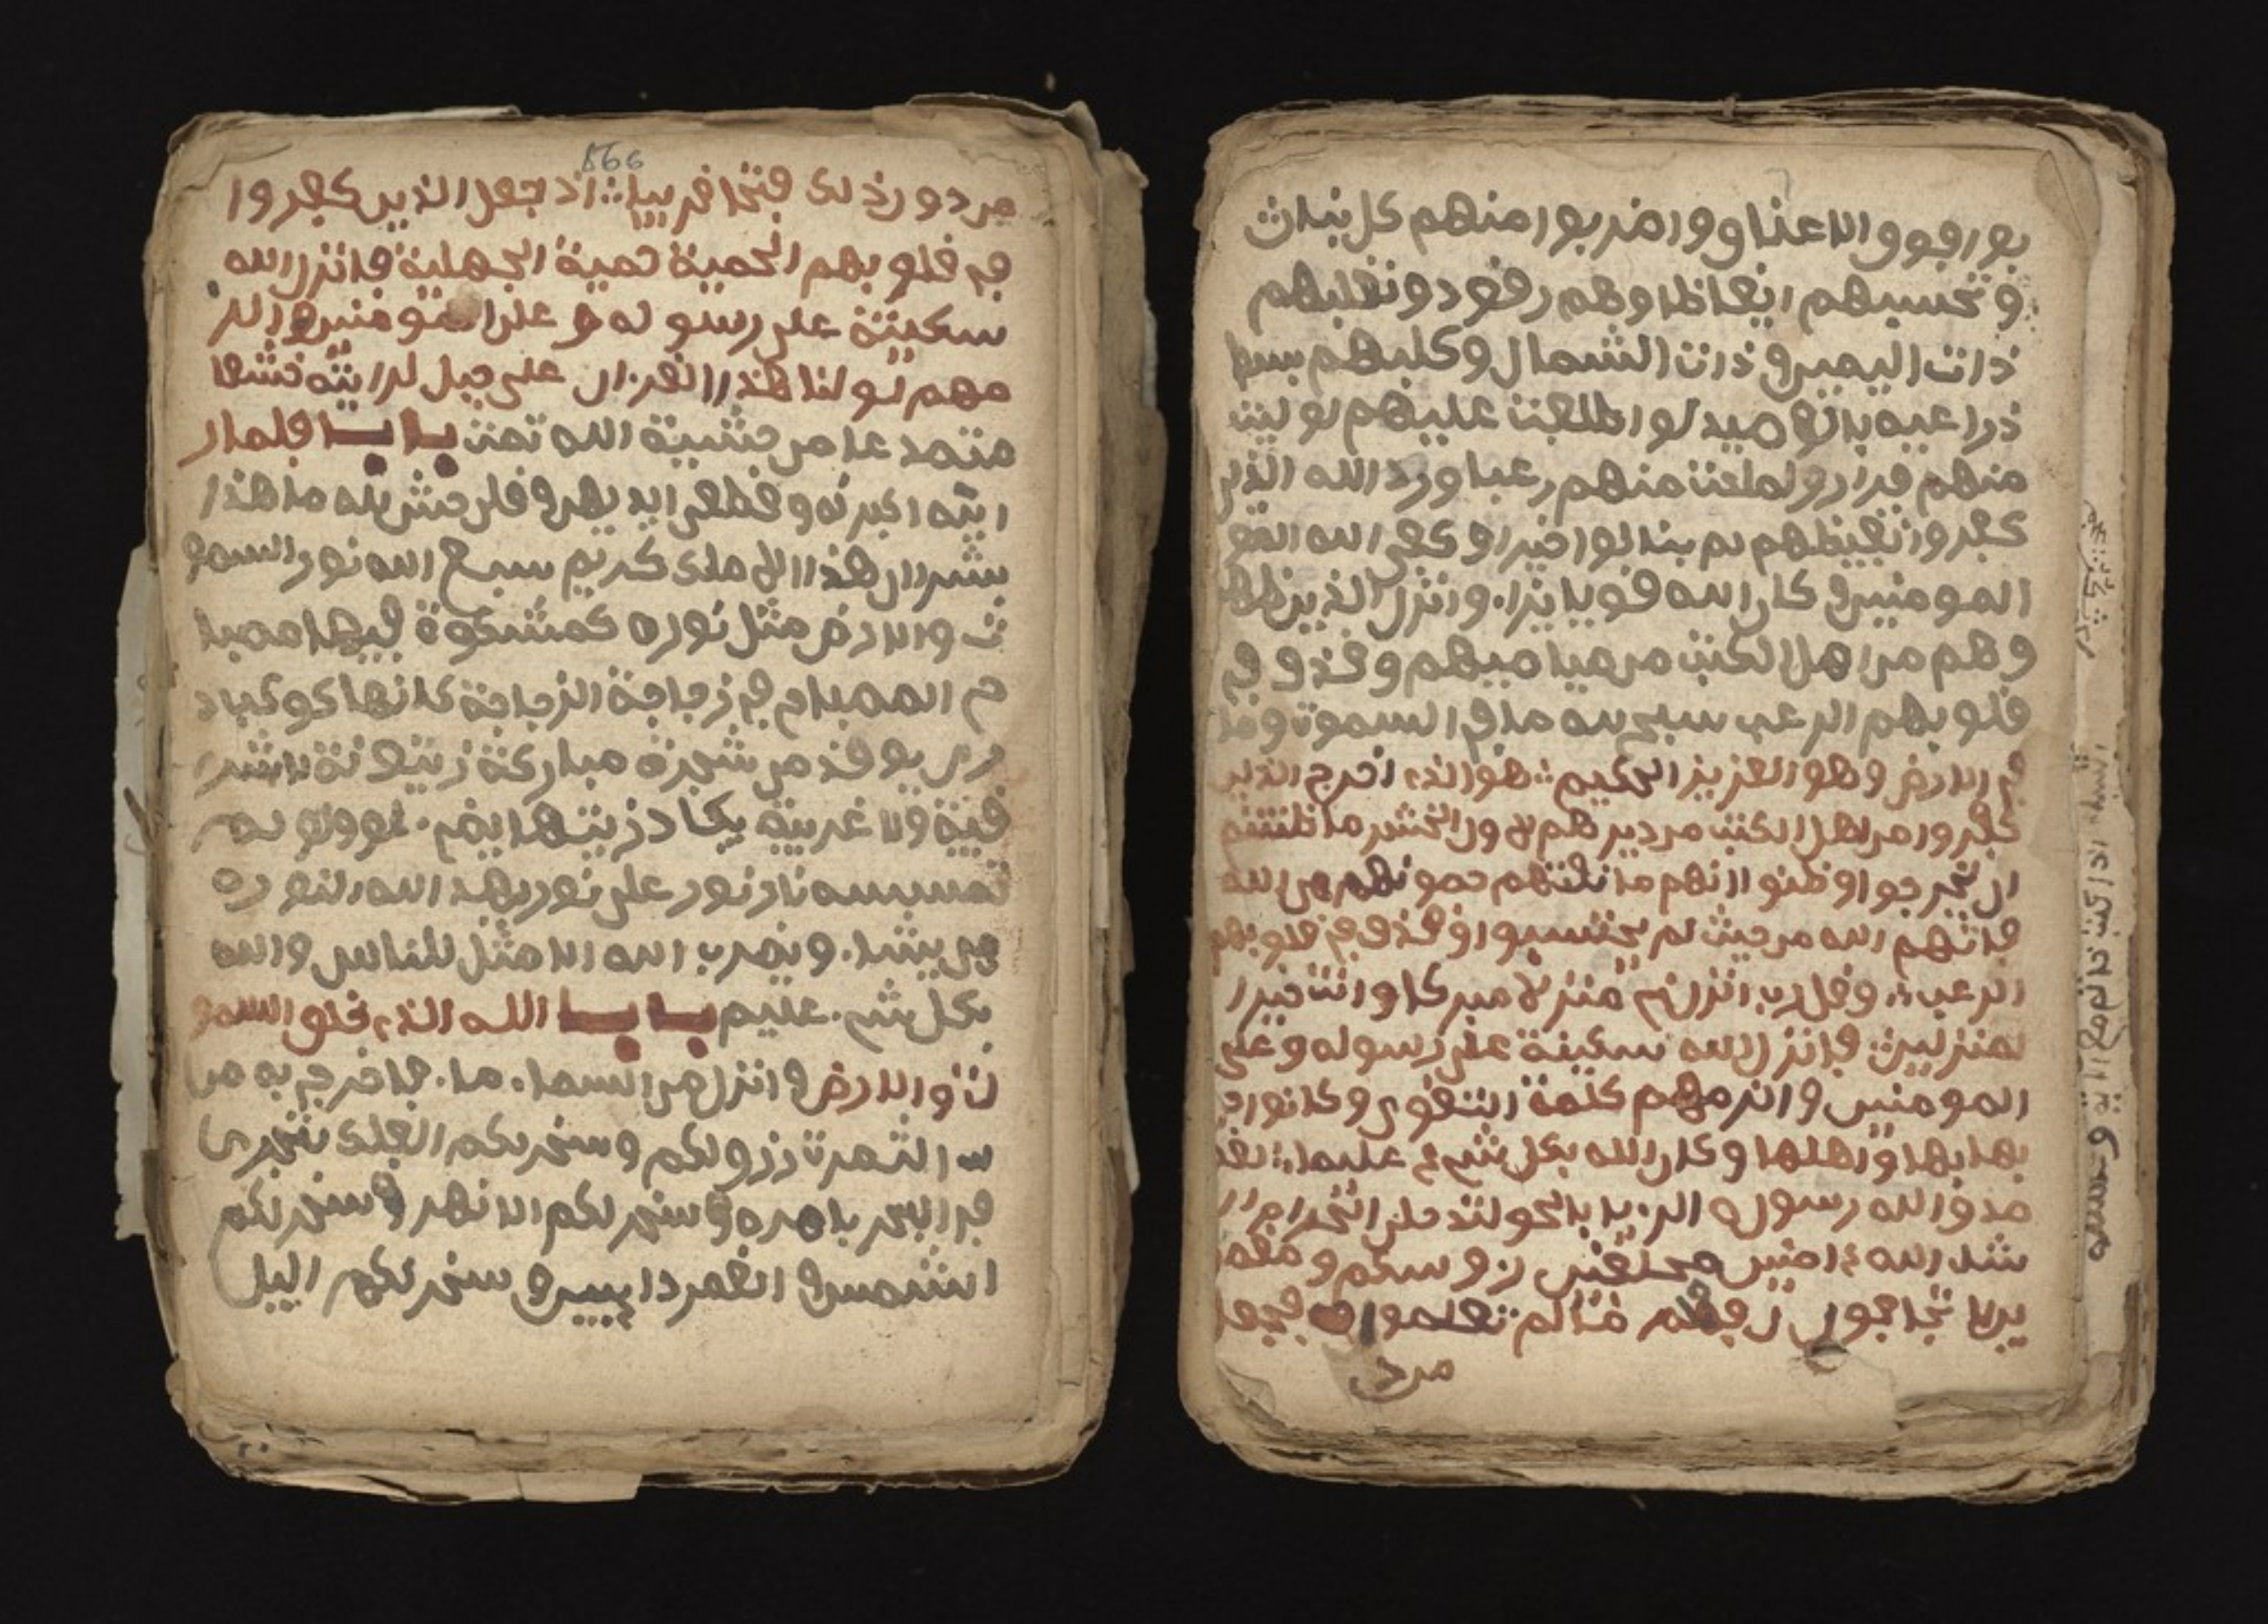 بوا فوق الاعناق واضربوا منهم كل بنان
وتحسبهم ايقاظا وهم رقود ونقلبهم
ذات اليمين وذات الشمال وكلبهم بسط
ذراعيه بالوصيد لو اطلعت عليهم لوليت
منهم فرارا ولملئت منهم رعبا ورد الله الذين
كفروا بغيظهم لم ينالوا خيرا وكفى الله القو
المومنين وكان الله قويا وانزل الذين ظاهر
وهم من اهل الكتب من صياصيهم وقذف في
قلوبهم الرعب سبح لله ما في السموت وما
في الارض وهو العزيز الحكيم هو الذي اخرج الذين
كفروا من اهل الكتب من ديرهم لاول الحشر ما ظننتم
ان يخرجوا وظنوا انهم ما نعتهم حصونهم من الله
فاتهم الله من حيث لم يحتسبوا وقذف في قلوبهم
الرعب وقل رب انزلني منزلا مبركا وانت خير ا
لمنزلين فانزل الله سكينة على رسوله وعلى
المومنين والزمهم كلمة التقوى وكانوا ا
بها بها واهلها وكان الله بكل شيء عليما لقد
صدق الله رسوله الريا بالحق لتدخلن الحرام ان
شاء الله ءامنين محلقين روسكم ومقصر
ين لا تخافون فعلم ما لم تعلموا فجعل
من د
866
من دون ذلك فتحا قريبا اذ جعل الذين كفروا
في قلوبهم الحمية حمية الجهلية فانزل الله
سكينته على رسوله وعلى المومنين والز
مهم لو لنا هذا القرءان على جبل لرايته خشعا
متصدعا من خشية الله تمت باب فلما ر
اينه اكبرنه وقطعن ايديهن وقلن حش لله ما هذا
بشرا ان هذا الا ملك كريم سبح الله نور السمو
ت والارض مثل نوره كمشكوة فيها مصبا
ح المصباح في زجاجة الزجاجة كانها كوكب د
ري يوقد من شجرة مباركة زيتونة لا شر
قية ولا غربية يكاد زيتها يضيء ولو لم
تمسسه نار نور على نور يهد الله لنوره
من يشاء ويضرب الله الامثل للناس والله
بكل شيء عليم باب الله الذي خلق السمو
ت والارض وانزل من السماء ماء فاخرج به من
ا الثمرت رزقا لكم وسخر لكم الفلك لتجري
في البحر بامره وسخر لكم الانهر وسخر لكم
الشمس والقمر دايبين وسخر لكم اليل